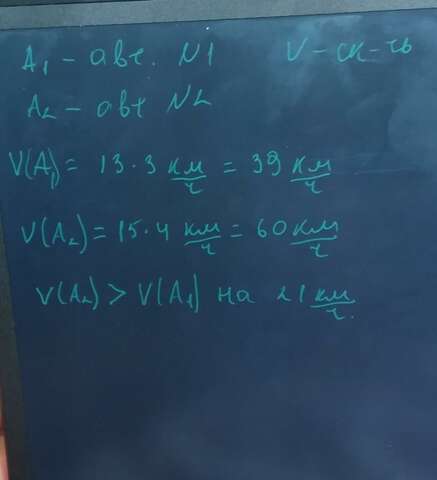 A₁ - авт. N1 V - ск-ть
A₂ - авт N2
V(A₁) = 13·3 км/ч = 39 км/ч
V(A₂) = 15·4 км/ч = 60 км/ч
V(A₂) > V(A₁) на 21 км/ч.